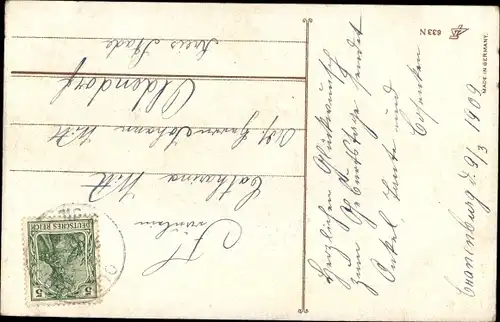 Fräulein
Catharina Witt
Adr. Herrn Johann Witt
Oldendorf
Kreis Stade
DEUTSCHES REICH
5 5
Herzlichen Glückwunsch
zum Geburtstage sendet
Onkel, Tante und
Geschw.
Cranenburg d. 9/3 1909
633 N
MADE IN GERMANY.